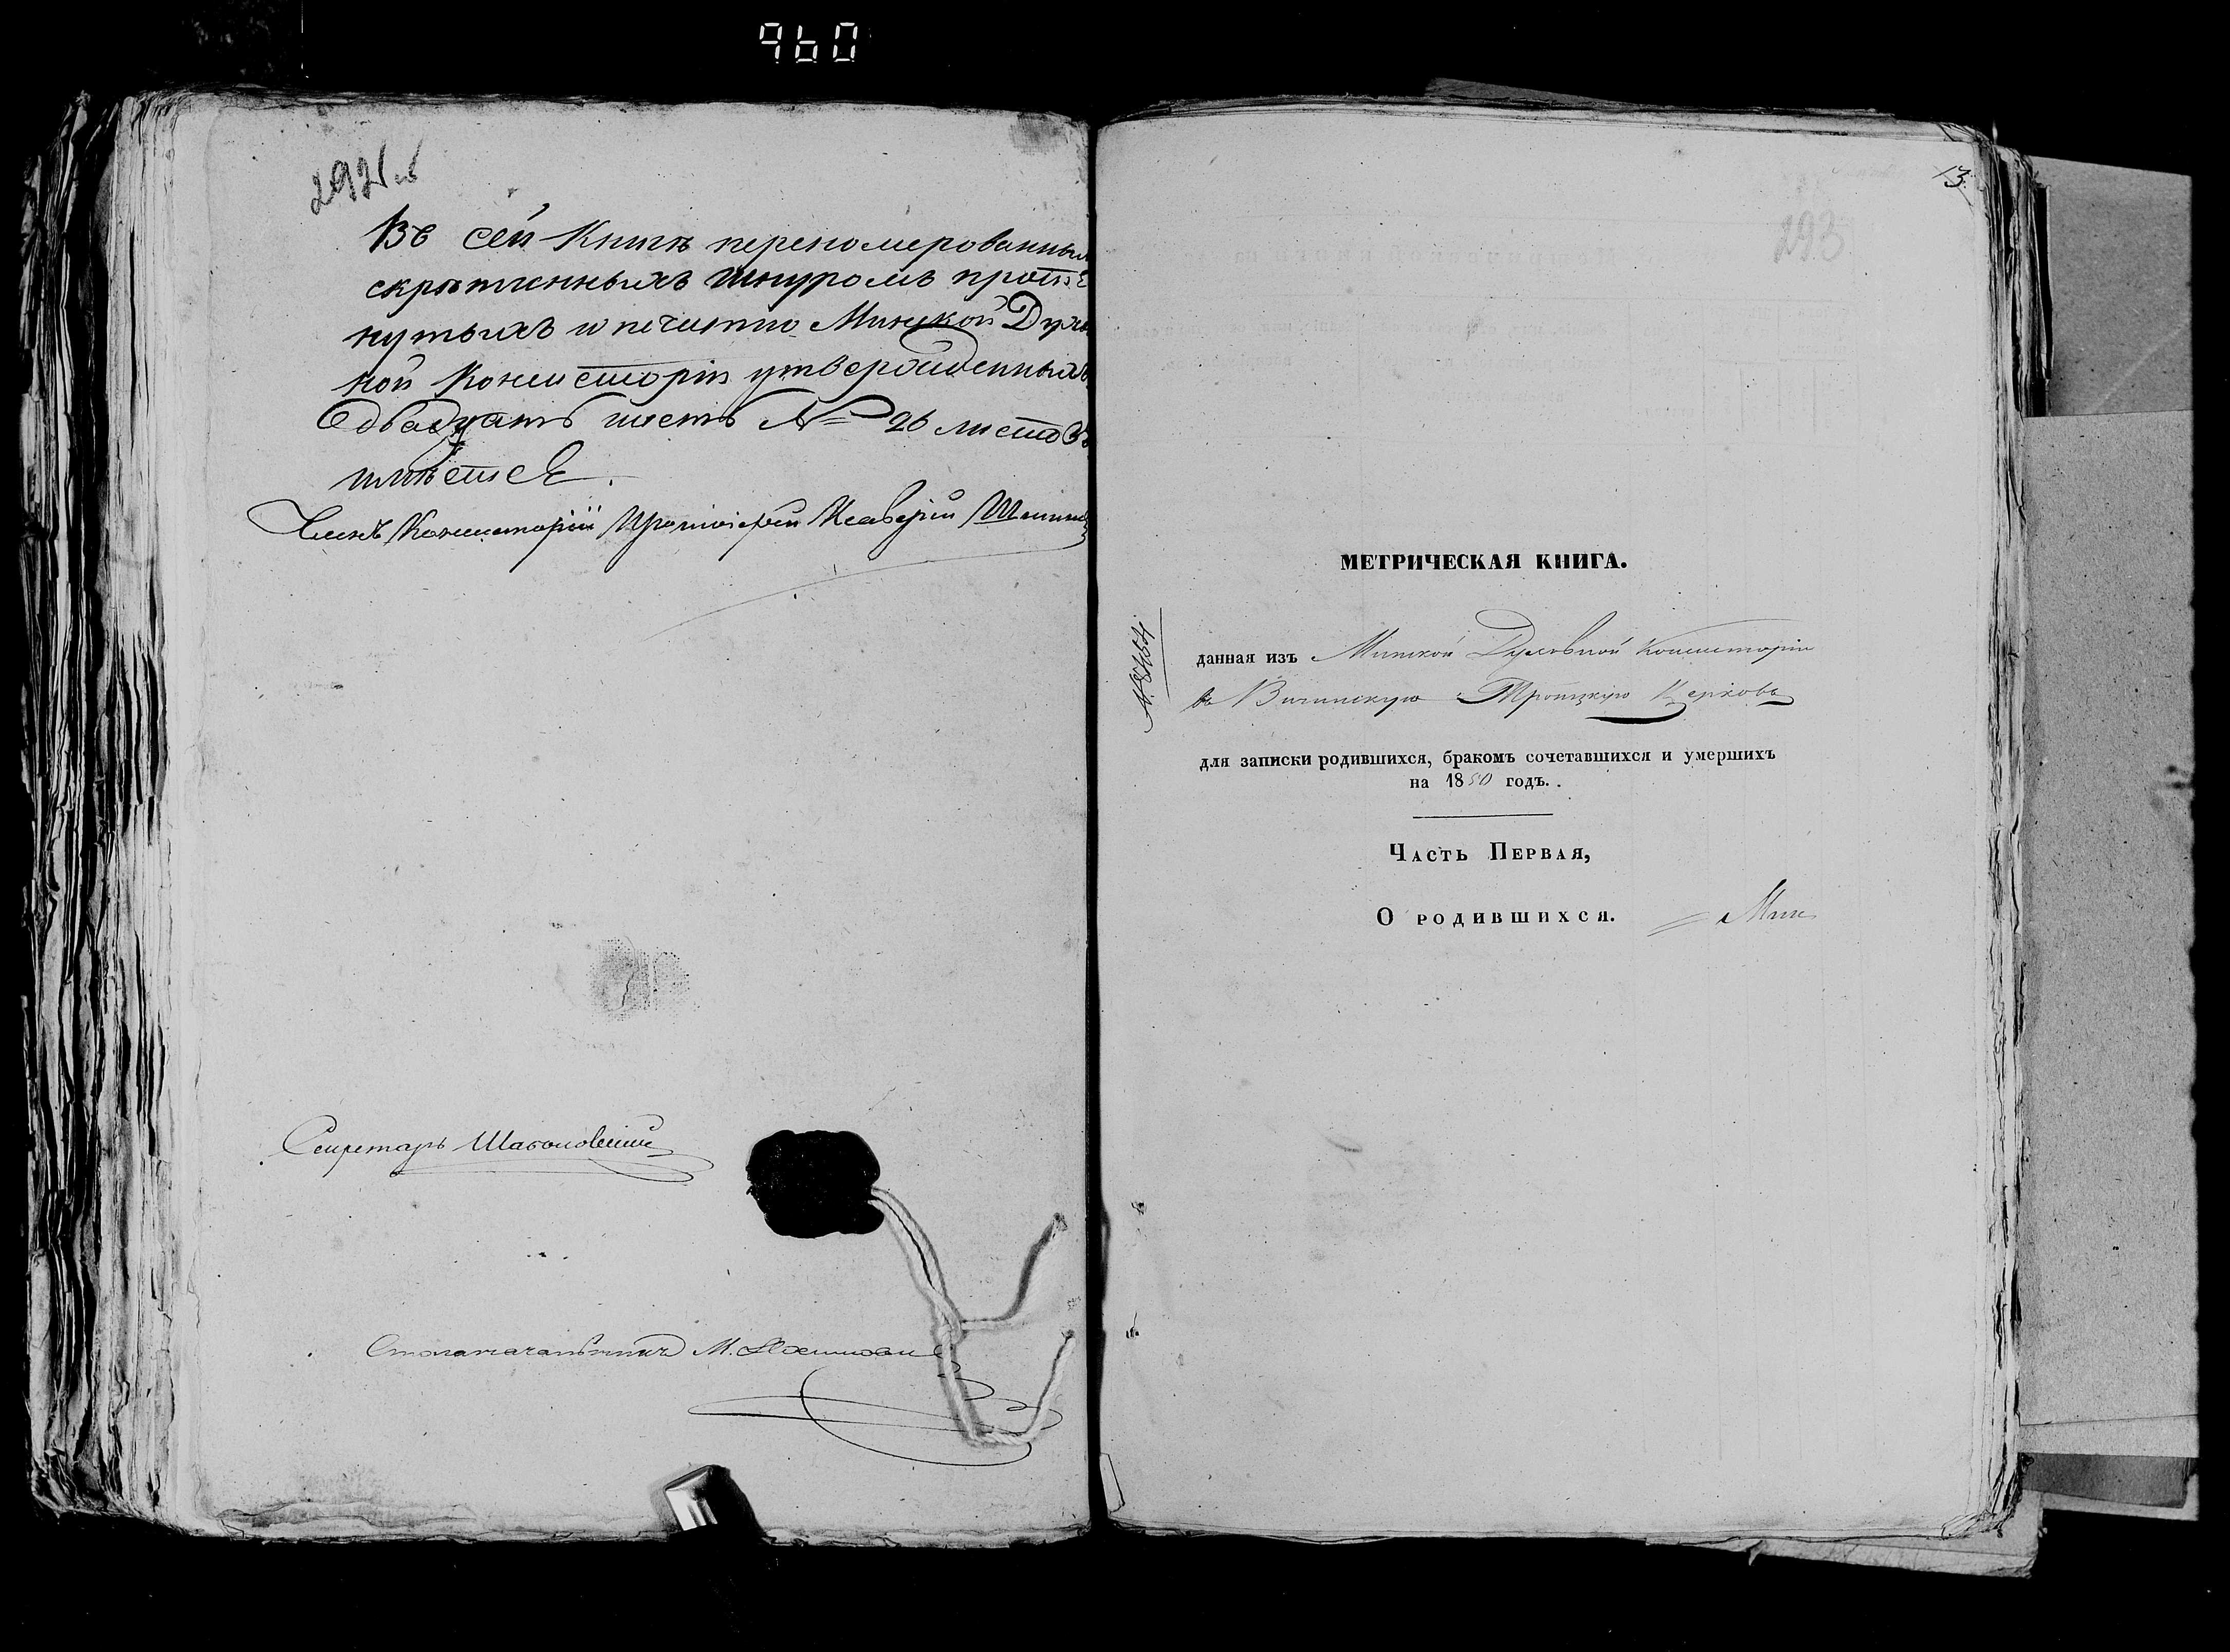 960
292
Въ сей Книгѣ переномерованныхъ
скрѣпленныхъ шнуромъ протя
нутыхъ и печатью Минской Духов
ной Консисторіи утвержденныхъ
двадцать шесть № 26 листовъ
имѣется.
Членъ Консисторіи Протоіерей
Секретарь
Столоначальникъ М.
13.
293
МЕТРИЧЕСКАЯ КНИГА.
данная изъ Минской Духовной Консисторіи
въ Вичинскую Троицкую Церковь
для записки родившихся, бракомъ сочетавшихся и умершихъ
на 1850 годъ.
Часть Первая,
О родившихся.